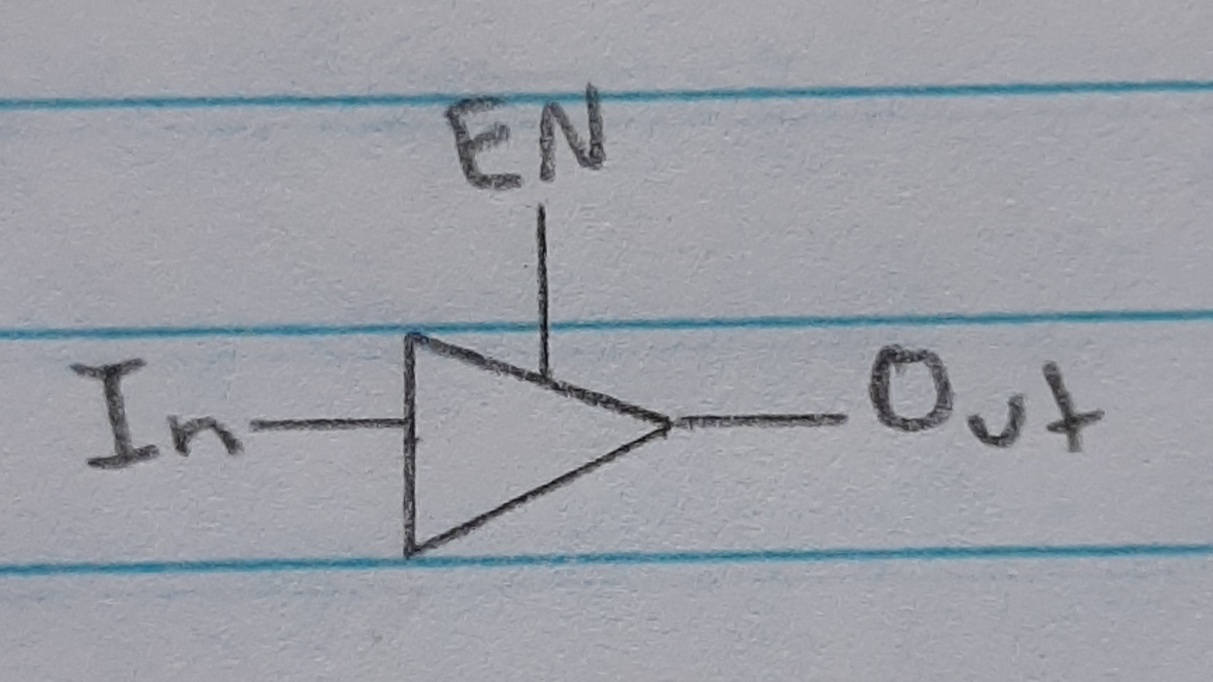 EN
In Out